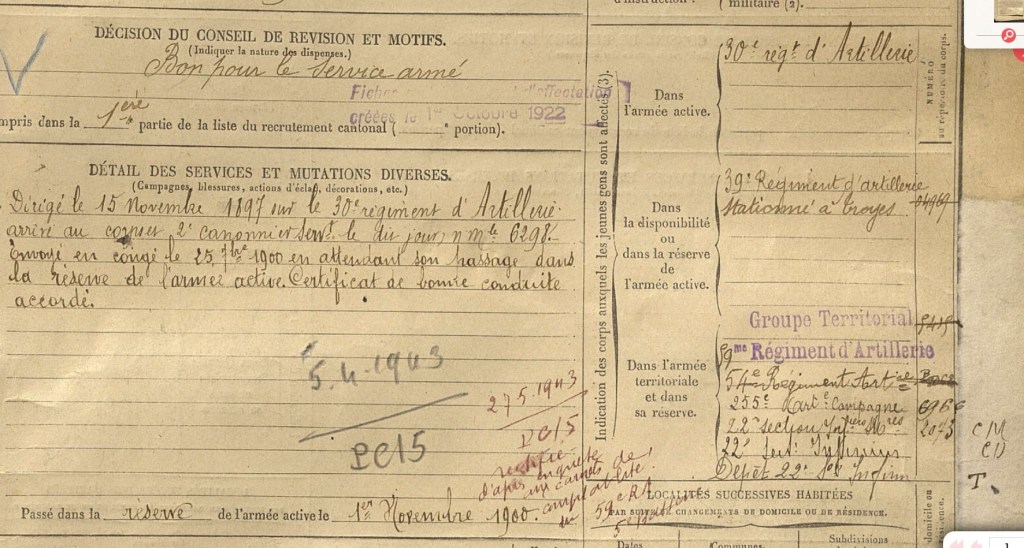 d'instruction :
militaire (2).
DÉCISION DU CONSEIL DE REVISION ET MOTIFS.
(Indiquer la nature des dispenses.)
Bon pour le service armé
Fiches d'affectation
créées le 1er Octobre 1922
mpris dans la 1ère partie de la liste du recrutement cantonal ( e portion).
DÉTAIL DES SERVICES ET MUTATIONS DIVERSES.
(Campagnes, blessures, actions d'éclat, décorations, etc.)
Dirigé le 15 Novembre 1897 sur le 30e régiment d'Artillerie.
arrivé au corps et 2e canonnier serv. le du jour, n mle 6298.
Envoyé en congé le 25 7bre 1900 en attendant son passage dans
la réserve de l'armée active. Certificat de bonne conduite
accordé.
5.4.1943
PC15
27 5.1943
PC15
rectifié
d'après enquête
aux carnets de
comptabilité.
59e RA
Passé dans la réserve de l'armée active le 1er Novembre 1900.
Indication des corps auxquels les jeunes gens sont affectés (3).
Dans
l'armée active.
30e régt d'Artillerie
NUMÉRO
au répertoire du corps.
Dans
la disponibilité
ou
dans la réserve
de
l'armée active.
39e Régiment d'artillerie
stationné à troyes
Dans l'armée
territoriale
et dans
sa réserve.
Groupe Territorial
59me Régiment d'Artillerie
54e Régiment Artie
255e Campagne
22e section
2073
22e
Dépôt 22e
LOCALITÉS SUCCESSIVES HABITÉES
PAR SUITE DE CHANGEMENTS DE DOMICILE OU DE RÉSIDENCE.
Dates
Communes
Subdivisions
domicile ou
CM
CD
T.